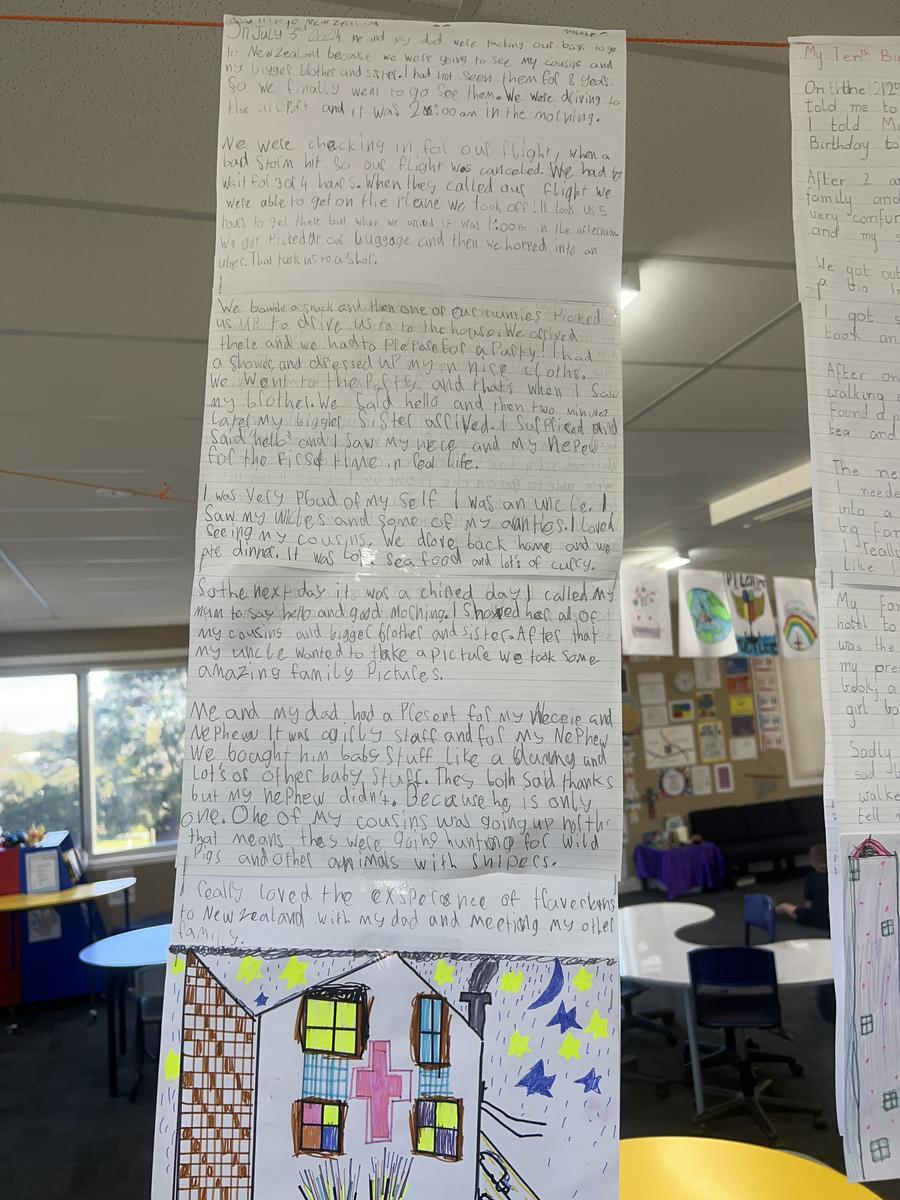 to New Zealand
On July 3rd 2024 me and my dad were packing our bags to go
to New Zealand because we were going to see my cousins and
my bigger brother and sister. I had not seen them for 8 years.
So we finally went to go see them. We were driving to
the airport and it was 2:00am in the morning.
We were checking in for our flight, when a
bad storm hit so our flight was canceled. We had to
wait for 3 or 4 hours. When they called our flight we
were able to get on the plane we took off! It took us 5
hours to get there but when we arrived it was 1:00 in the afternoon
We got picked our luggage and then we hopped into an
uber. That took us to a shop.
We bought a snack and then one of our aunties picked
us up to drive us to to the house. We arrived
there and we had to prepare for a party! I had
a shower and dressed up my in nice cloths.
We went to the party and that's when I saw
my brother. We said hello and then two minutes
later my bigger sister arrived. I suprised and
said hello and I saw my niece and my nepew
for the first time in real life.
I was very proud of my self I was an uncle. I
saw my uncles and some of my aunties. I loved
seeing my cousins. We drove back home and we
ate dinner. It was lots sea food and lots of curry.
So the next day it was a chined day I called my
mum to say hello and good morning. I showed her al of
my cousins and bigger brother and sister. After that
my uncle wanted to take a picture we took some
amazing family pictures.
Me and my dad had a present for my and
Nephew It was girly staff and for my Nephew
We bought him baby stuff like a dummy and
Lot's of other baby stuff. They both said thanks
but my nephew didn't. Because he is only
one. One of my cousins was going up north
that means they were going hunting for wild
Pigs and other animals with snipers.
I really loved the of
to New Zealand with my dad and meeting my other
family.
My Tenth Bi
On the
told me to
I told
Birthday to
After 2
family and
very confu
and my
We got out
I got
took an
After on
walking
found
tea and
The ne
I neede
into a
big far
I really
like
My far
hotel to
was the
my pre
book, a
girl ba
Sadly
sad
walke
tell
PILGRIM